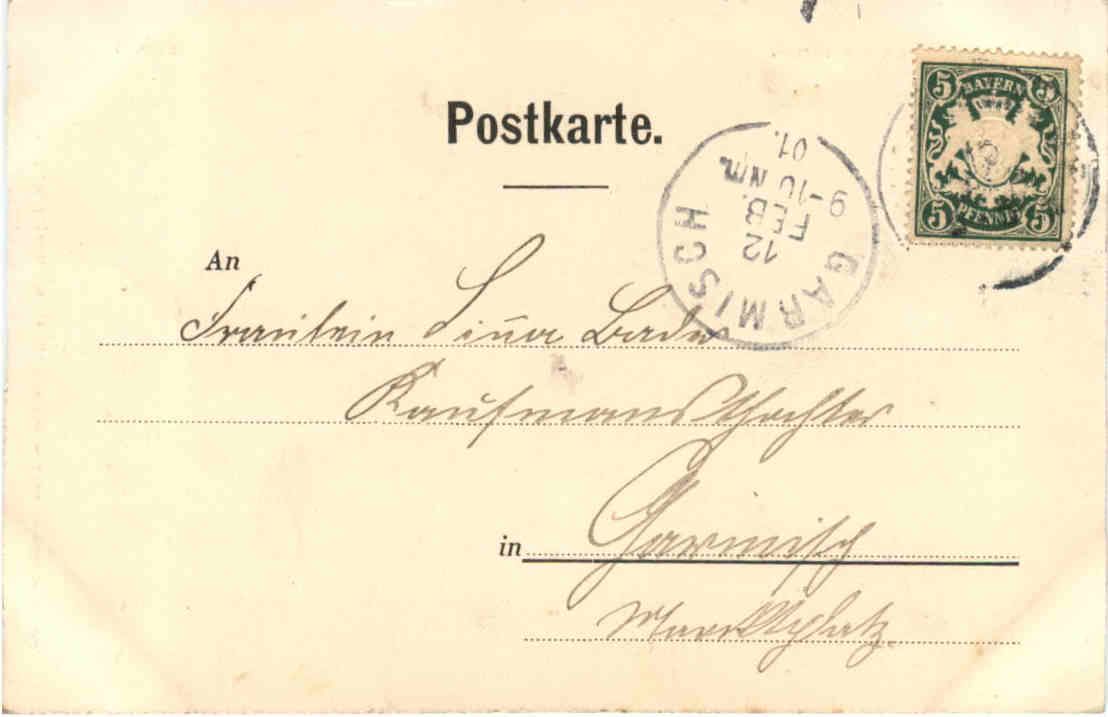 Postkarte.
5 BAYERN 5
5 PFENNIG 5
GARMISCH
12
FEB.
9-10 Nm.
01.
An
Fräulein Lina Bader
Kaufmannstochter
in Garmisch
Marktplatz.